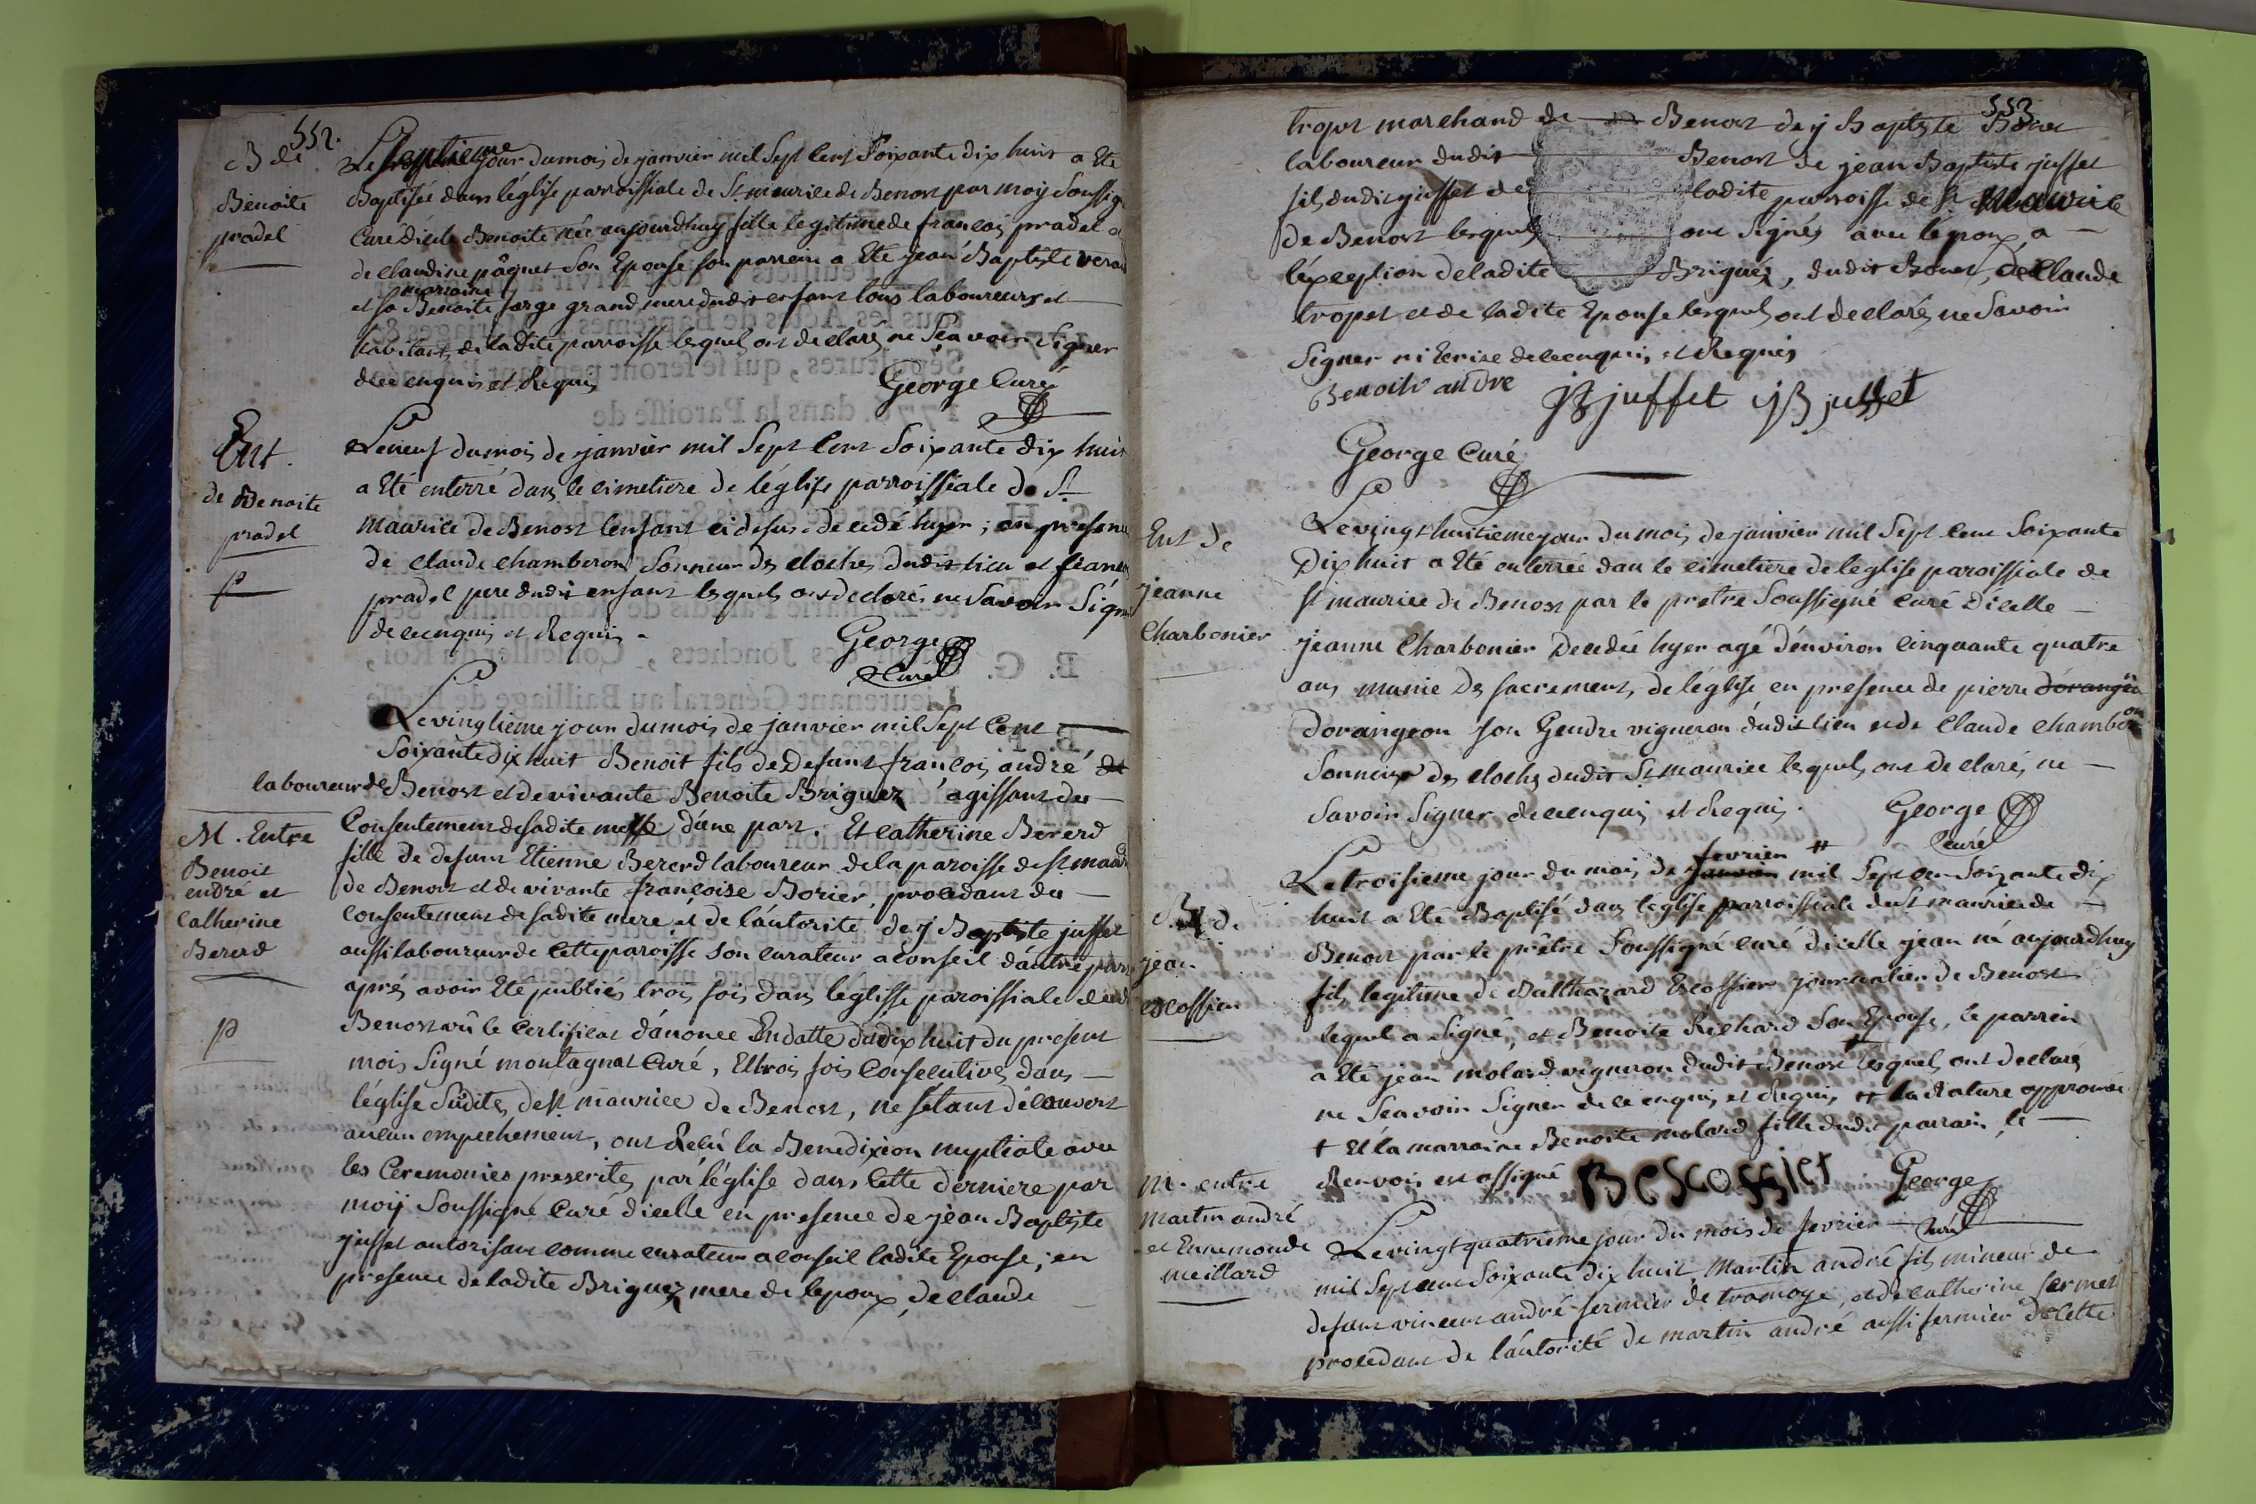 552.
B de
Benoite
pradel
Le septieme jour du mois de janvier mil Sept Cent Soixante dix huit a Eté
Baptisée dans léglise parroissiale de St maurice de Benost par moy Soussig
Curé dicelle Benoite née aujourdhuy fille legitime de francois pradel
de Claudine pâquet Son Epouse son parrein a Eté jean Baptiste veran
et sa marraine Benoite forge grand mere dudit enfant tous laboureurs et
habitants de ladite parroisse lequels ont declaré ne Sçavoir Signer
de ce enquis et Requis
George Curé
Ent.
de Benoite
pradel
p
Le neuf du mois de janvier mil Sept Cent Soixante dix huit
a Eté enterré dans le cimetiere de léglise parroissiale de St
maurice de Benost lenfant ci desus decedé hyer ; en presence
de Claude Chamberon Sonneur des cloches dudit lieu et francois
pradel pere dudit enfant lesquels ont declaré ne Savoir Signer
de ce enquis et Requis.
George
Curé
M. Entre
Benoit
andré et
Catherine
Bererd
p
Le vingtieme jour du mois de janvier mil Sept Cent
Soixante dix huit Benoit fils de Defunt francois andré
laboureur de Benost et de vivante Benoite Briguez agissant du
Consentement de sadite mere d'une part. Et Catherine Bererd
fille de defunt Etienne Bererd laboureur de la paroisse de St maurice
de Benost et de vivante francoise Borier, procedant du
Consentement de sadite mere et de láutorité de j Baptiste juffet
aussi laboureur de Cette paroisse Son Curateur a Conseil dáutre part
aprés avoir Eté publiés trois fois dans léglisse paroissiale de
Benost vû le Certificat dánonce En datte du dix huit du present
mois Signé montagnat Curé, Et trois fois Consecutives dans
léglise Sudite de St maurice de Benost, ne sétant découvert
aucun empechement, ont Recû la Benedixion nuptiale avec
les Ceremonies prescrites par léglise dans Cette derniere par
moy Soussigné Curé dicelle en presence de jean Baptiste
juffet autorisant comme curateur a conseil ladite Epouse ; en
presence de ladite Briguez mere de lepoux, de Claude
553
tropet marchand de Benost de j Baptiste Bovet
laboureur dudit Benost de jean Baptiste juffet
fils dudit juffet de ladite parroisse de St Maurice
de Benost lesquels ont signés avec lepoux a
léxception de ladite Briguez, dudit Bovet, de Claude
tropet et de ladite Epouse lesquels ont declarés ne Savoir
Signer ni Ecrire de ce enquis et Requis
Benoit andre JB juffet JB juffet
George Curé
Ent de
jeanne
Charbonier
Le vingt huitieme jour du mois de janvier mil Sept Cent Soixante
Dix huit a Eté enterrée dans le cimetiere de léglise paroissiale de
St maurice de Benost par le pretre Soussigné Curé dicelle
jeanne Charbonier Decedée hyer agé dénviron Cinquante quatre
ans munie des sacrements de léglise en presence de pierre dorangeon
Dorangeon son Gendre vigneron dudit lieu et de Claude Chamberon
Sonneur des cloches dudit St maurice lesquels ont declarés ne
Savoir Signer de ce enquis et Requis.
George
Curé
B. de
jean
escossier
Le troisieme jour du mois de janvier fevrier # mil Sept Cent Soixante dix
huit a Eté Baptisé dans leglise parroissiale de St maurice de
Benost par le prêtre Soussigné curé dicelle jean né aujourdhuy
fils legitime de Balthazard Escossier journalier de Benost
lequel a Signé, et Benoite Richard Son Epouse, le parrein
a Eté jean molard vigneron dudit Benost † lesquels ont declarés
ne Sçavoir Signer de ce enquis et Requis # la Rature approuvée
† Et la marraine Benoite molard fille dudit parrain, le
Renvoi est assigné Bescossier George
Curé
M. entre
Martin andré
et Ennemonde
meillard
Le vingt quatrieme jour du mois de fevrier
mil Sept cent Soixante dix huit Martin andré fils mineur de
defunt vincent andré fermier de tramoye, et de Catherine fermet
procedant de láutorité de martin andré aussi fermier de Cette